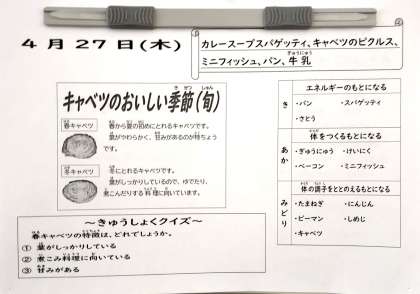 4月27日(木)
カレースープスパゲッティ、キャベツのピクルス、
ミニフィッシュ、パン、牛乳
ぎゅうにゅう
キャベツのおいしい季節(旬)
きせつ しゅん
春キャベツ
春から夏の初めにとれるキャベツです。
葉がやわらかく、甘みがあるのが特ちょう
です。
冬キャベツ
冬にとれるキャベツです。
葉がしっかりしているので、ゆでたり、
煮こんだりする料理に向いています。
～きゅうしょくクイズ～
春キャベツの特徴は、どれでしょうか。
① 葉がしっかりしている
② 煮こみ料理に向いている
③ 甘みがある
エネルギーのもとになる
き
・パン ・スパゲッティ
・さとう
体をつくるもとになる
あか
・ぎゅうにゅう ・けいにく
・ベーコン ・ミニフィッシュ
体の調子をととのえるもとになる
みどり
・たまねぎ ・にんじん
・ピーマン ・しめじ
・キャベツ